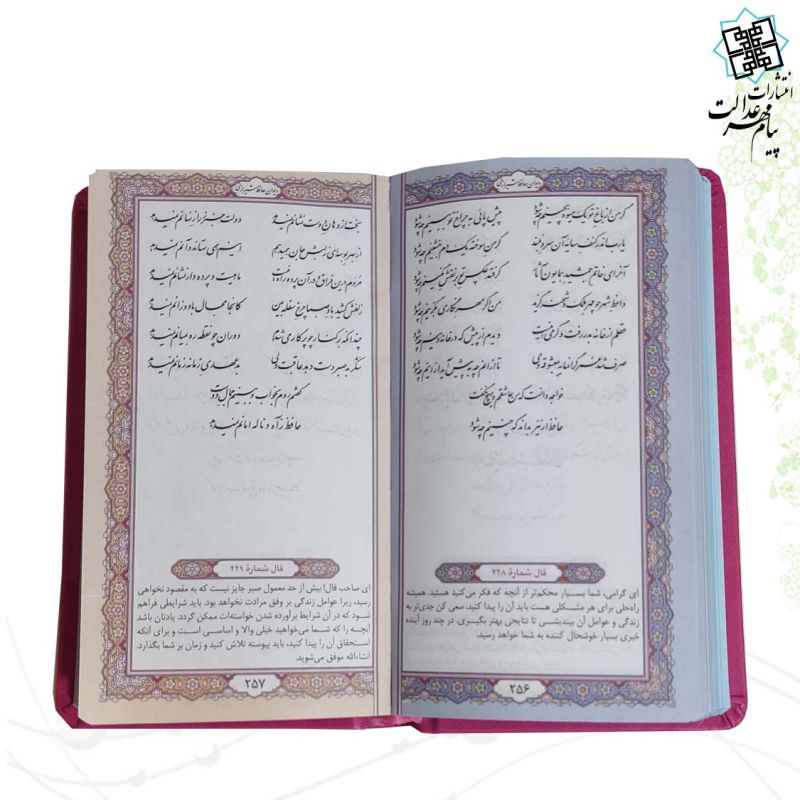 انتشارات
پیام مهر عدالت
دیوان حافظ شیرازی
گر من از باغ تو یک میوه بچینم چه شود پیش پائی به چراغ تو ببینم چه شود
یارب اندر کنف سایه آن سرو بلند گر من سوخته یک دم بنشینم چه شود
آخر ای خاتم جمشید همایون آثار گر فتد عکس تو بر نقش نگینم چه شود
واعظ شهر چو مهر ملک و شحنه گزید من اگر مهر نگاری بگزینم چه شود
عقلم از خانه به در رفت و گر می اینست دیدم از پیش که در خانه دینم چه شود
صرف شد عمر گرانمایه به معشوقه و می تا از آنم چه به پیش آید از اینم چه شود
خواجه دانست که من عاشقم و هیچ نگفت
حافظ ار نیز بداند که چنینم چه شود
فال شمارهٔ ۲۲۸
ای گرامی، شما بسیار محکم‌تر از آنچه که فکر می‌کنید هستید. همیشه
راه‌حلی برای هر مشکلی هست باید آن را پیدا کنید. سعی کن جدی‌تر به
زندگی و عوامل آن بیندیشی تا نتایجی بهتر بگیری. در چند روز آینده
خبری بسیار خوشحال کننده به شما خواهد رسید.
۲۵۶
دیوان حافظ شیرازی
بخت از دهان دوست نشانم نمیدهد دولت خبر ز راز نهانم نمیدهد
از بهر بوسه‌ای ز لبش جان همیدهم اینم همی ستاند و آنم نمیدهد
مردم درین فراق و در آن پرده راه نیست یا هست و پرده دار نشانم نمیدهد
زلفش کشید باد صبا چرخ سفله بین کانجا مجال باد وزانم نمیدهد
چندانکه بر کنار چو پرگار می شدم دوران چو نقطه ره به میانم نمیدهد
شکر به صبر دست دهد عاقبت ولی بد عهدی زمانه زمانم نمیدهد
گفتم روم بخواب و ببینم جمال دوست
حافظ ز آه و ناله امانم نمیدهد
فال شمارهٔ ۲۲۹
ای صاحب فال! بیش از حد معمول صبر جایز نیست که به مقصود نخواهی
رسید، زیرا عوامل زندگی بر وفق مرادت نخواهد بود. باید شرایطی فراهم
شود که در آن شرایط برآورده شدن خواسته‌ات ممکن گردد. یادتان باشد
آنچه را که شما می‌خواهید خیلی والا و اساسی است و برای آنکه
استحقاق آن را پیدا کنید، باید پیوسته تلاش کنید و زمان بر شما بگذارد.
انشاءالله موفق می‌شوید.
۲۵۷